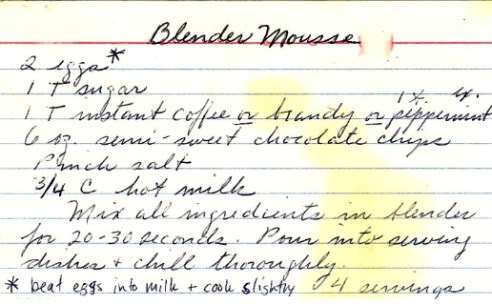 Blender Mousse
2 eggs*
1 T sugar
1 t. ex.
1 T instant coffee or brandy or peppermint
6 oz. semi-sweet chocolate chips
Pinch salt
3/4 C hot milk
Mix all ingredients in blender
for 20-30 seconds. Pour into serving
dishes + chill thoroughly.
* beat eggs into milk + cook slightly 4 servings